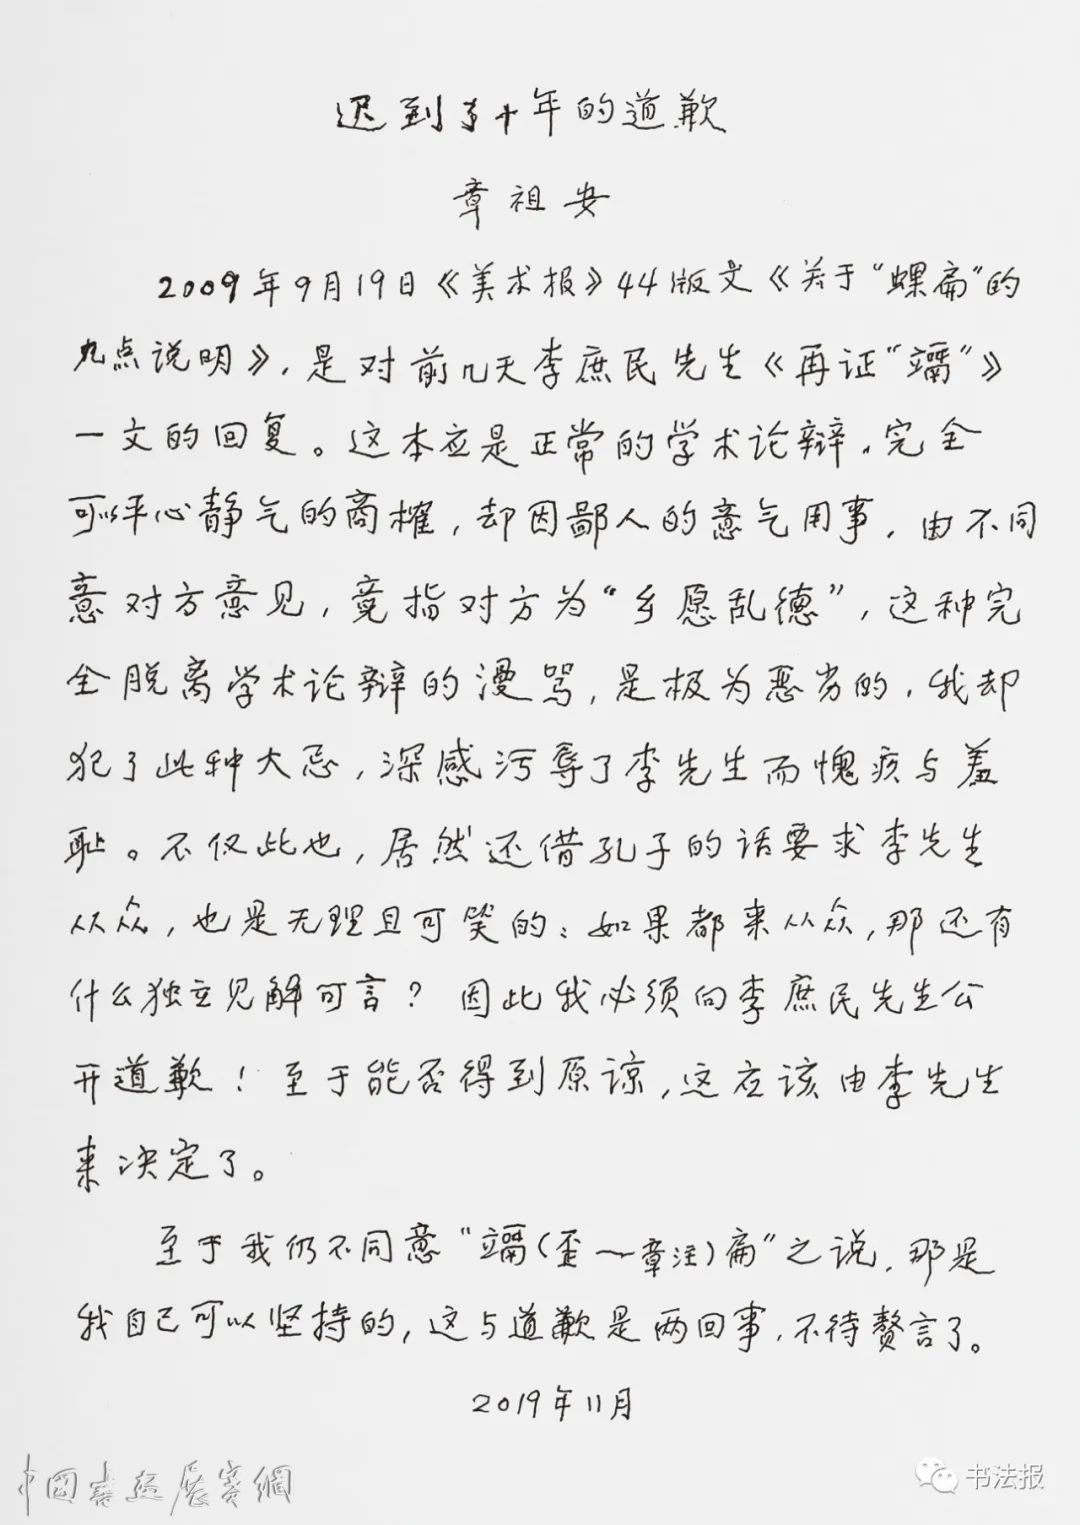 迟到了十年的道歉
章祖安
2009年9月19日《美术报》44版文《关于“螺扁”的
九点说明》，是对前几天李庶民先生《再证“竵”》
一文的回复。这本应是正常的学术论辩，完全
可以平心静气的商榷，却因鄙人的意气用事，由不同
意对方意见，竟指对方为“乡愿乱德”，这种完
全脱离学术论辩的漫骂，是极为恶劣的，我却
犯了此种大忌，深感污辱了李先生而愧疚与羞
耻。不仅此也，居然还借孔子的话要求李先生
从众，也是无理且可笑的：如果都来从众，那还有
什么独立见解可言？因此我必须向李庶民先生公
开道歉！至于能否得到原谅，这应该由李先生
来决定了。
至于我仍不同意“竵（歪—章注）扁”之说，那是
我自己可以坚持的，这与道歉是两回事，不待赘言了。
2019年11月
中国书法展赛网
书法报